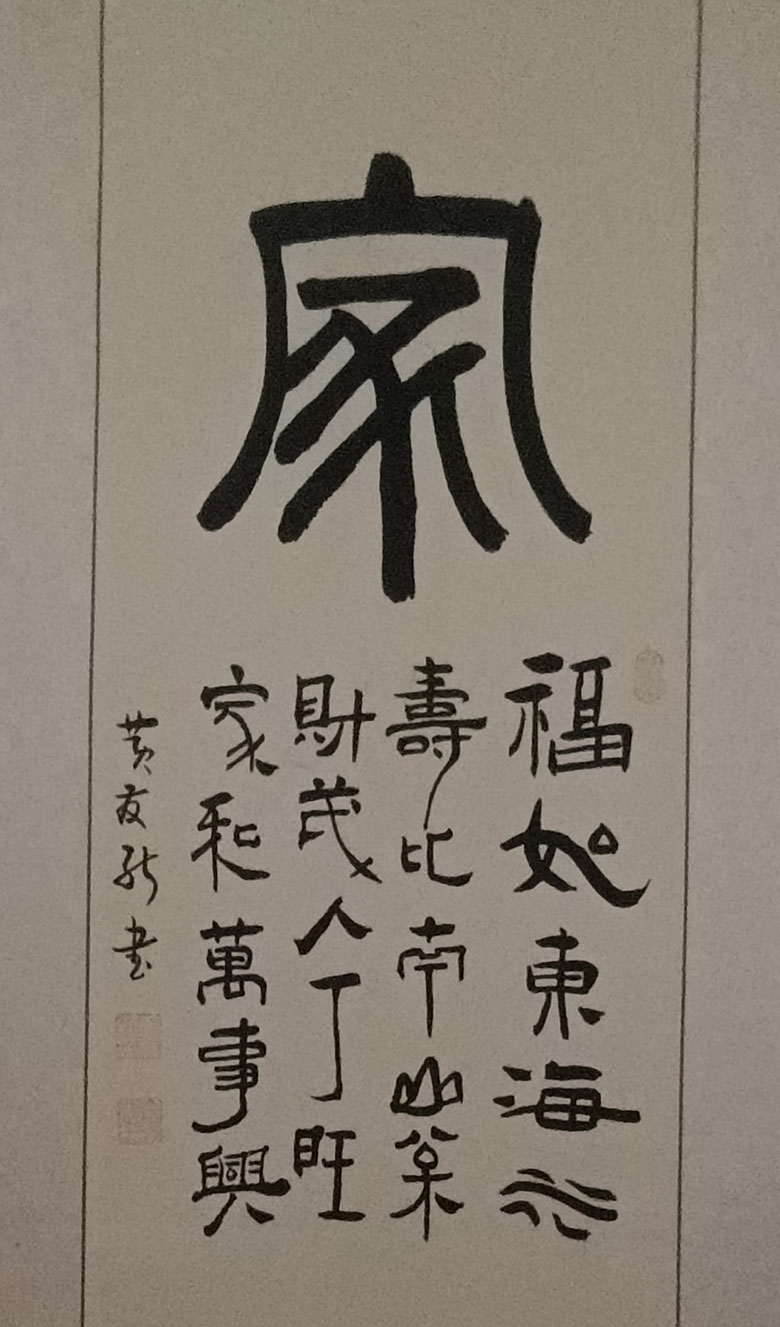 家
福如東海水
壽比南山枀
財茂人丁旺
家和萬事興
黄友書